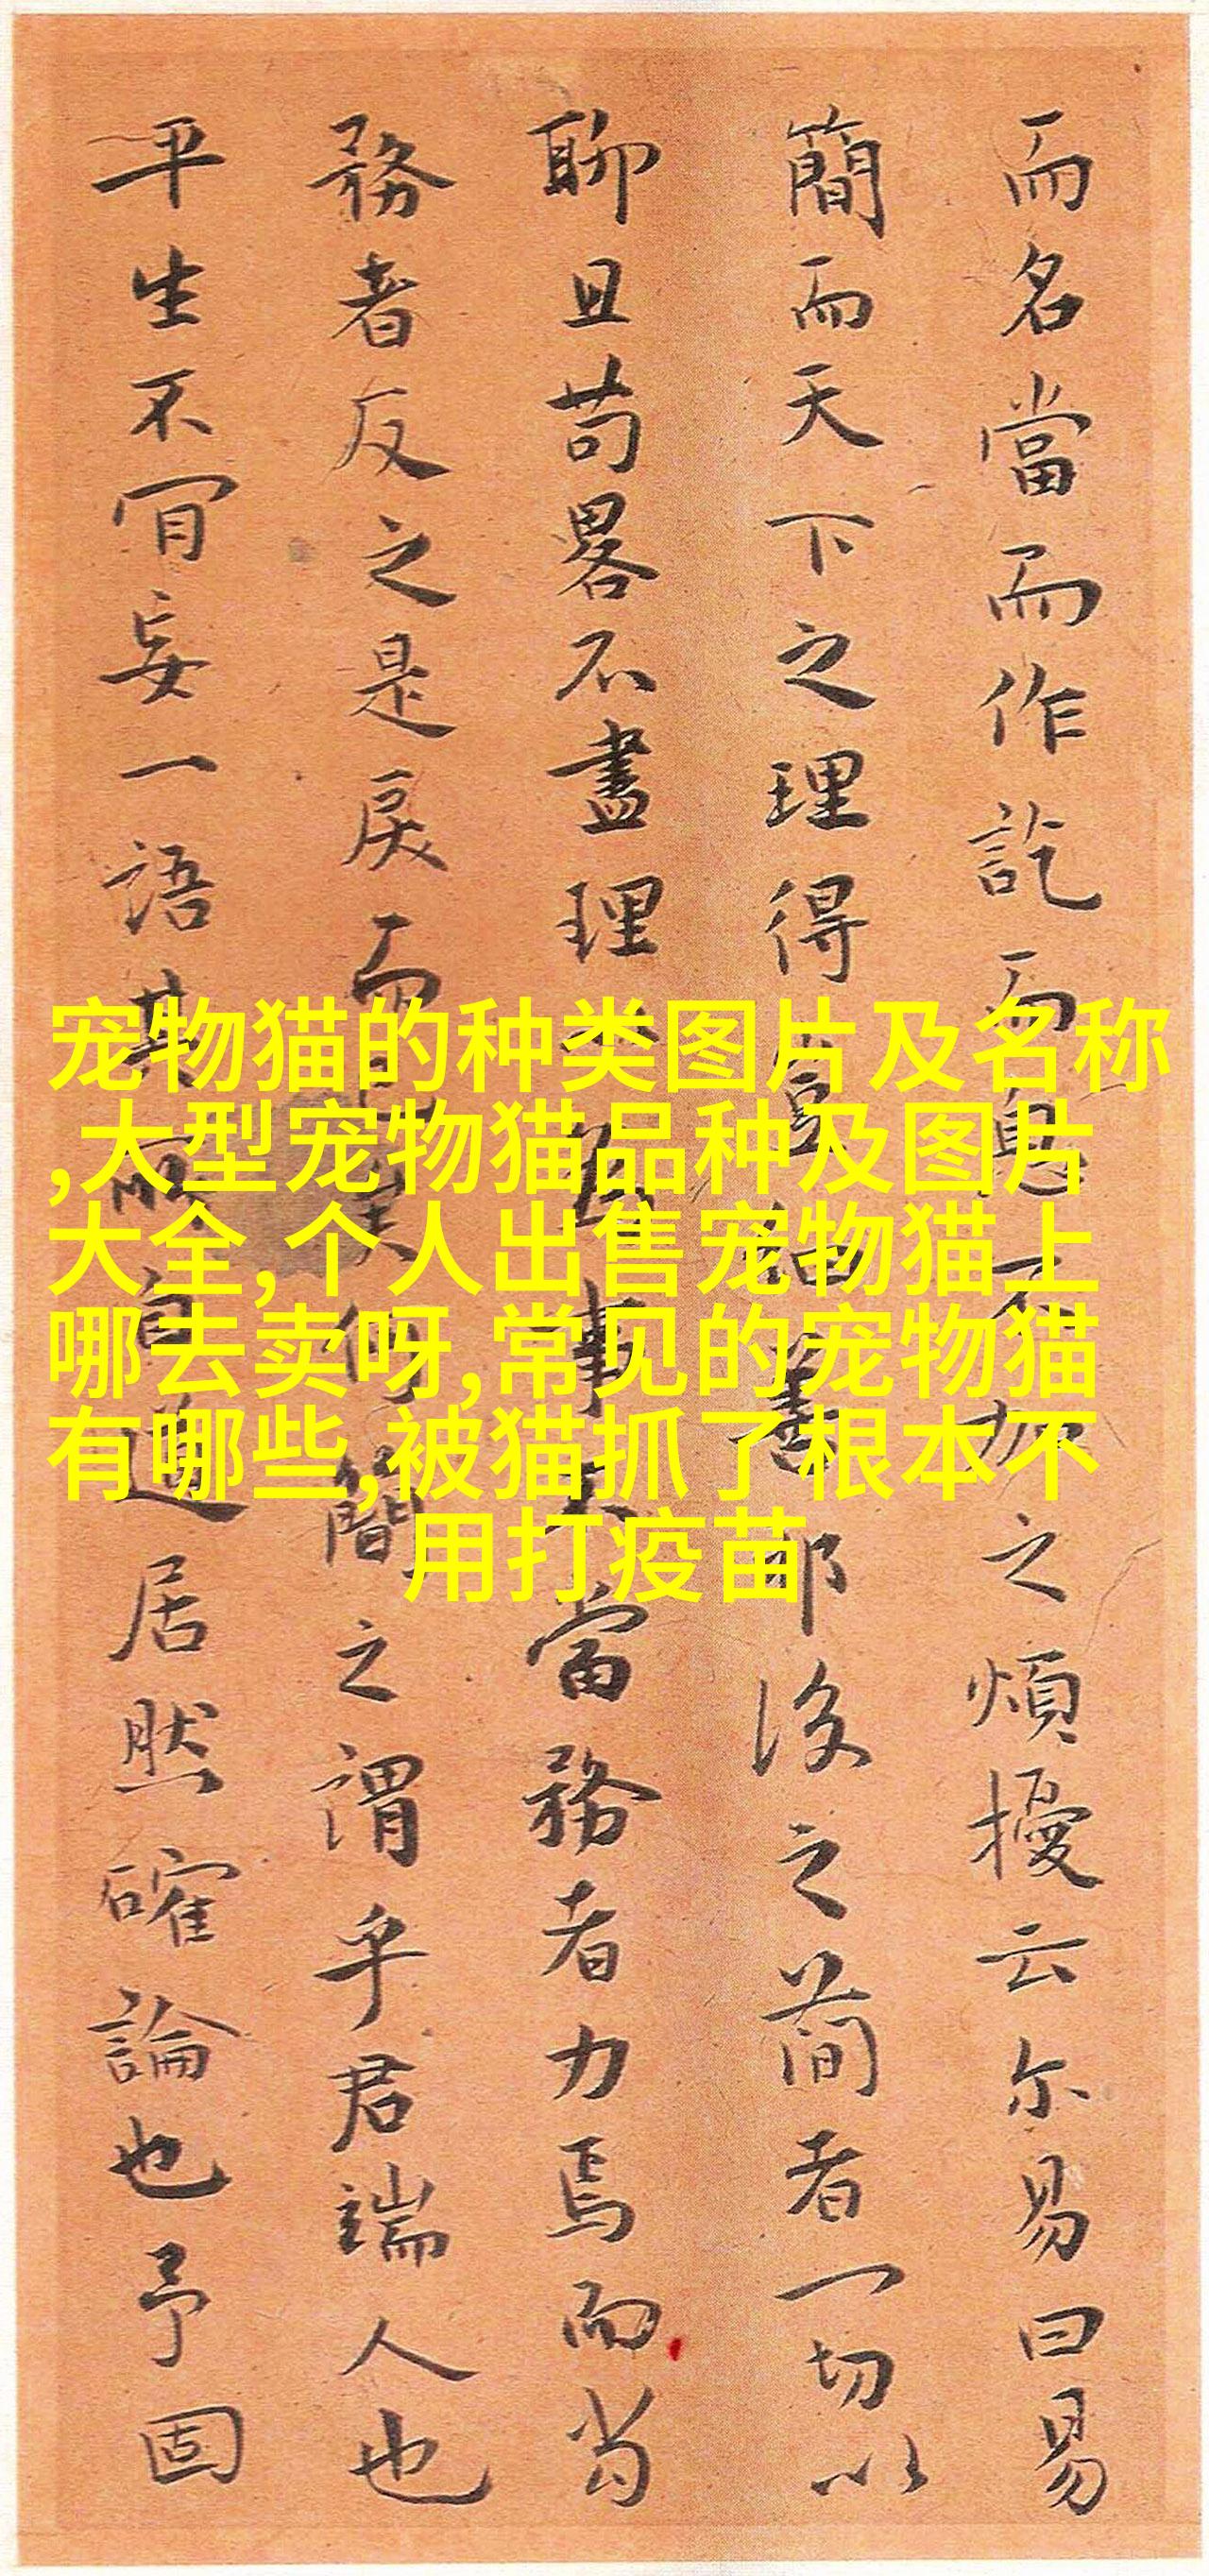 而名當而作訖而息不加之煩擾云尔易曰易
簡而天下之理得豈細耶後之簡者一切以
聊且苟畧不盡理事當務者力焉而
務者反之是戾而已矣何簡之謂乎君端人也
平生不肎妄一語其所自道居然確論也予固
宠物猫的种类图片及名称
,大型宠物猫品种及图片
大全,个人出售宠物猫上
哪去卖呀,常见的宠物猫
有哪些,被猫抓了根本不
用打疫苗